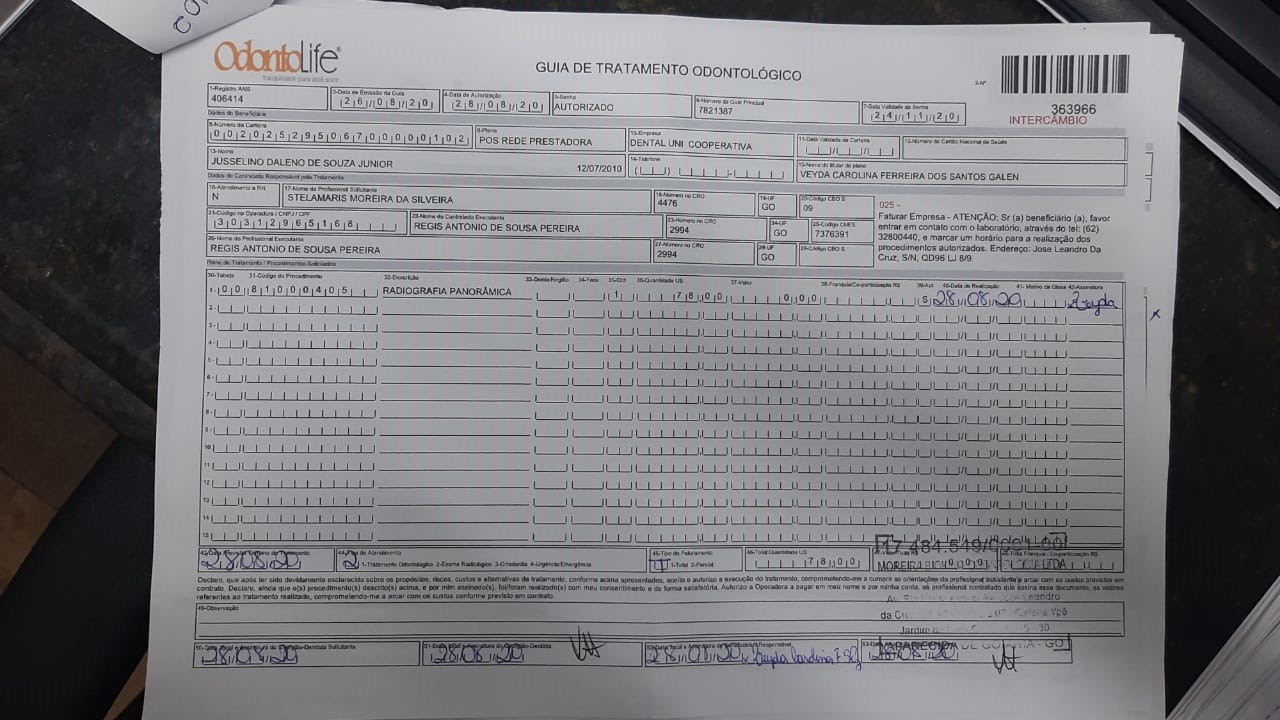 OdontoLife®
tranquilidade para você sorrir
GUIA DE TRATAMENTO ODONTOLÓGICO
2-Nº
363966
INTERCÂMBIO
1-Registro ANS
406414
3-Data de Emissão da Guia
26/08/20
4-Data de Autorização
28/08/20
5-Senha
AUTORIZADO
6-Número da Guia Principal
7821387
7-Data Validade da Senha
24/11/20
Dados do Beneficiário
8-Número da Carteira
00202529506700000102
9-Plano
POS REDE PRESTADORA
10-Empresa
DENTAL UNI COOPERATIVA
11-Data Validade da Carteira
12-Número do Cartão Nacional de Saúde
13-Nome
JUSSELINO DALENO DE SOUZA JUNIOR 12/07/2010
14-Telefone
15-Nome do titular do plano
VEYDA CAROLINA FERREIRA DOS SANTOS GALEN
Dados do Contratado Responsável pelo Tratamento
16-Atendimento a RN
N
17-Nome do Profissional Solicitante
STELAMARIS MOREIRA DA SILVEIRA
18-Número no CRO
4476
19-UF
GO
20-Código CBO S
09
21-Código na Operadora / CNPJ / CPF
30312965168
22-Nome do Contratado Executante
REGIS ANTONIO DE SOUSA PEREIRA
23-Número no CRO
2994
24-UF
GO
25-Código CNES
7376391
26-Nome do Profissional Executante
REGIS ANTONIO DE SOUSA PEREIRA
27-Número no CRO
2994
28-UF
GO
29-Código CBO S
025 -
Faturar Empresa - ATENÇÃO: Sr (a) beneficiário (a), favor
entrar em contato com o laboratório, através do tel: (62)
32800440, e marcar um horário para a realização dos
procedimentos autorizados. Endereço: Jose Leandro Da
Cruz, S/N, QD96 LJ 8/9
Plano de Tratamento / Procedimentos Solicitados
30-Tabela 31-Código do Procedimento 32-Descrição 33-Dente/Região 34-Face 35-Qtd 36-Quantidade US 37-Valor 38-Franquia/Co-participação R$ 39-Aut 40-Data de Realização 41- Motivo da Glosa 42-Assinatura
1- 00 81000405 RADIOGRAFIA PANORÂMICA 1 78,00 0,00 S 28/08/20 Veyda
2-
3-
4-
5-
6-
7-
8-
9-
10
11
12
13
14
15
28/08/20
44-Tipo de Atendimento
2 1-Tratamento Odontológico 2-Exame Radiológico 3-Ortodontia 4-Urgência/Emergência
45-Tipo de Faturamento
1-Total 2-Parcial
46-Total Quantidade US
78,00
Declaro, que após ter sido devidamente esclarecido sobre os propósitos, riscos, custos e alternativas de tratamento, conforme acima apresentados, aceito e autorizo a execução do tratamento, comprometendo-me a cumprir as orientações do profissional assistente e arcar com os custos previstos em
contrato. Declaro, ainda que o(s) procedimento(s) descrito(s) acima, e por mim assinado(s), foi/foram realizado(s) com meu consentimento e de forma satisfatória. Autorizo a Operadora a pagar em meu nome e por minha conta, ao profissional contratado que assina esse documento, os valores
referentes ao tratamento realizado, comprometendo-me a arcar com os custos conforme previsto em contrato.
49-Observação
28/08/20
28/08/20
APARECIDA DE GOIÂNIA - GO